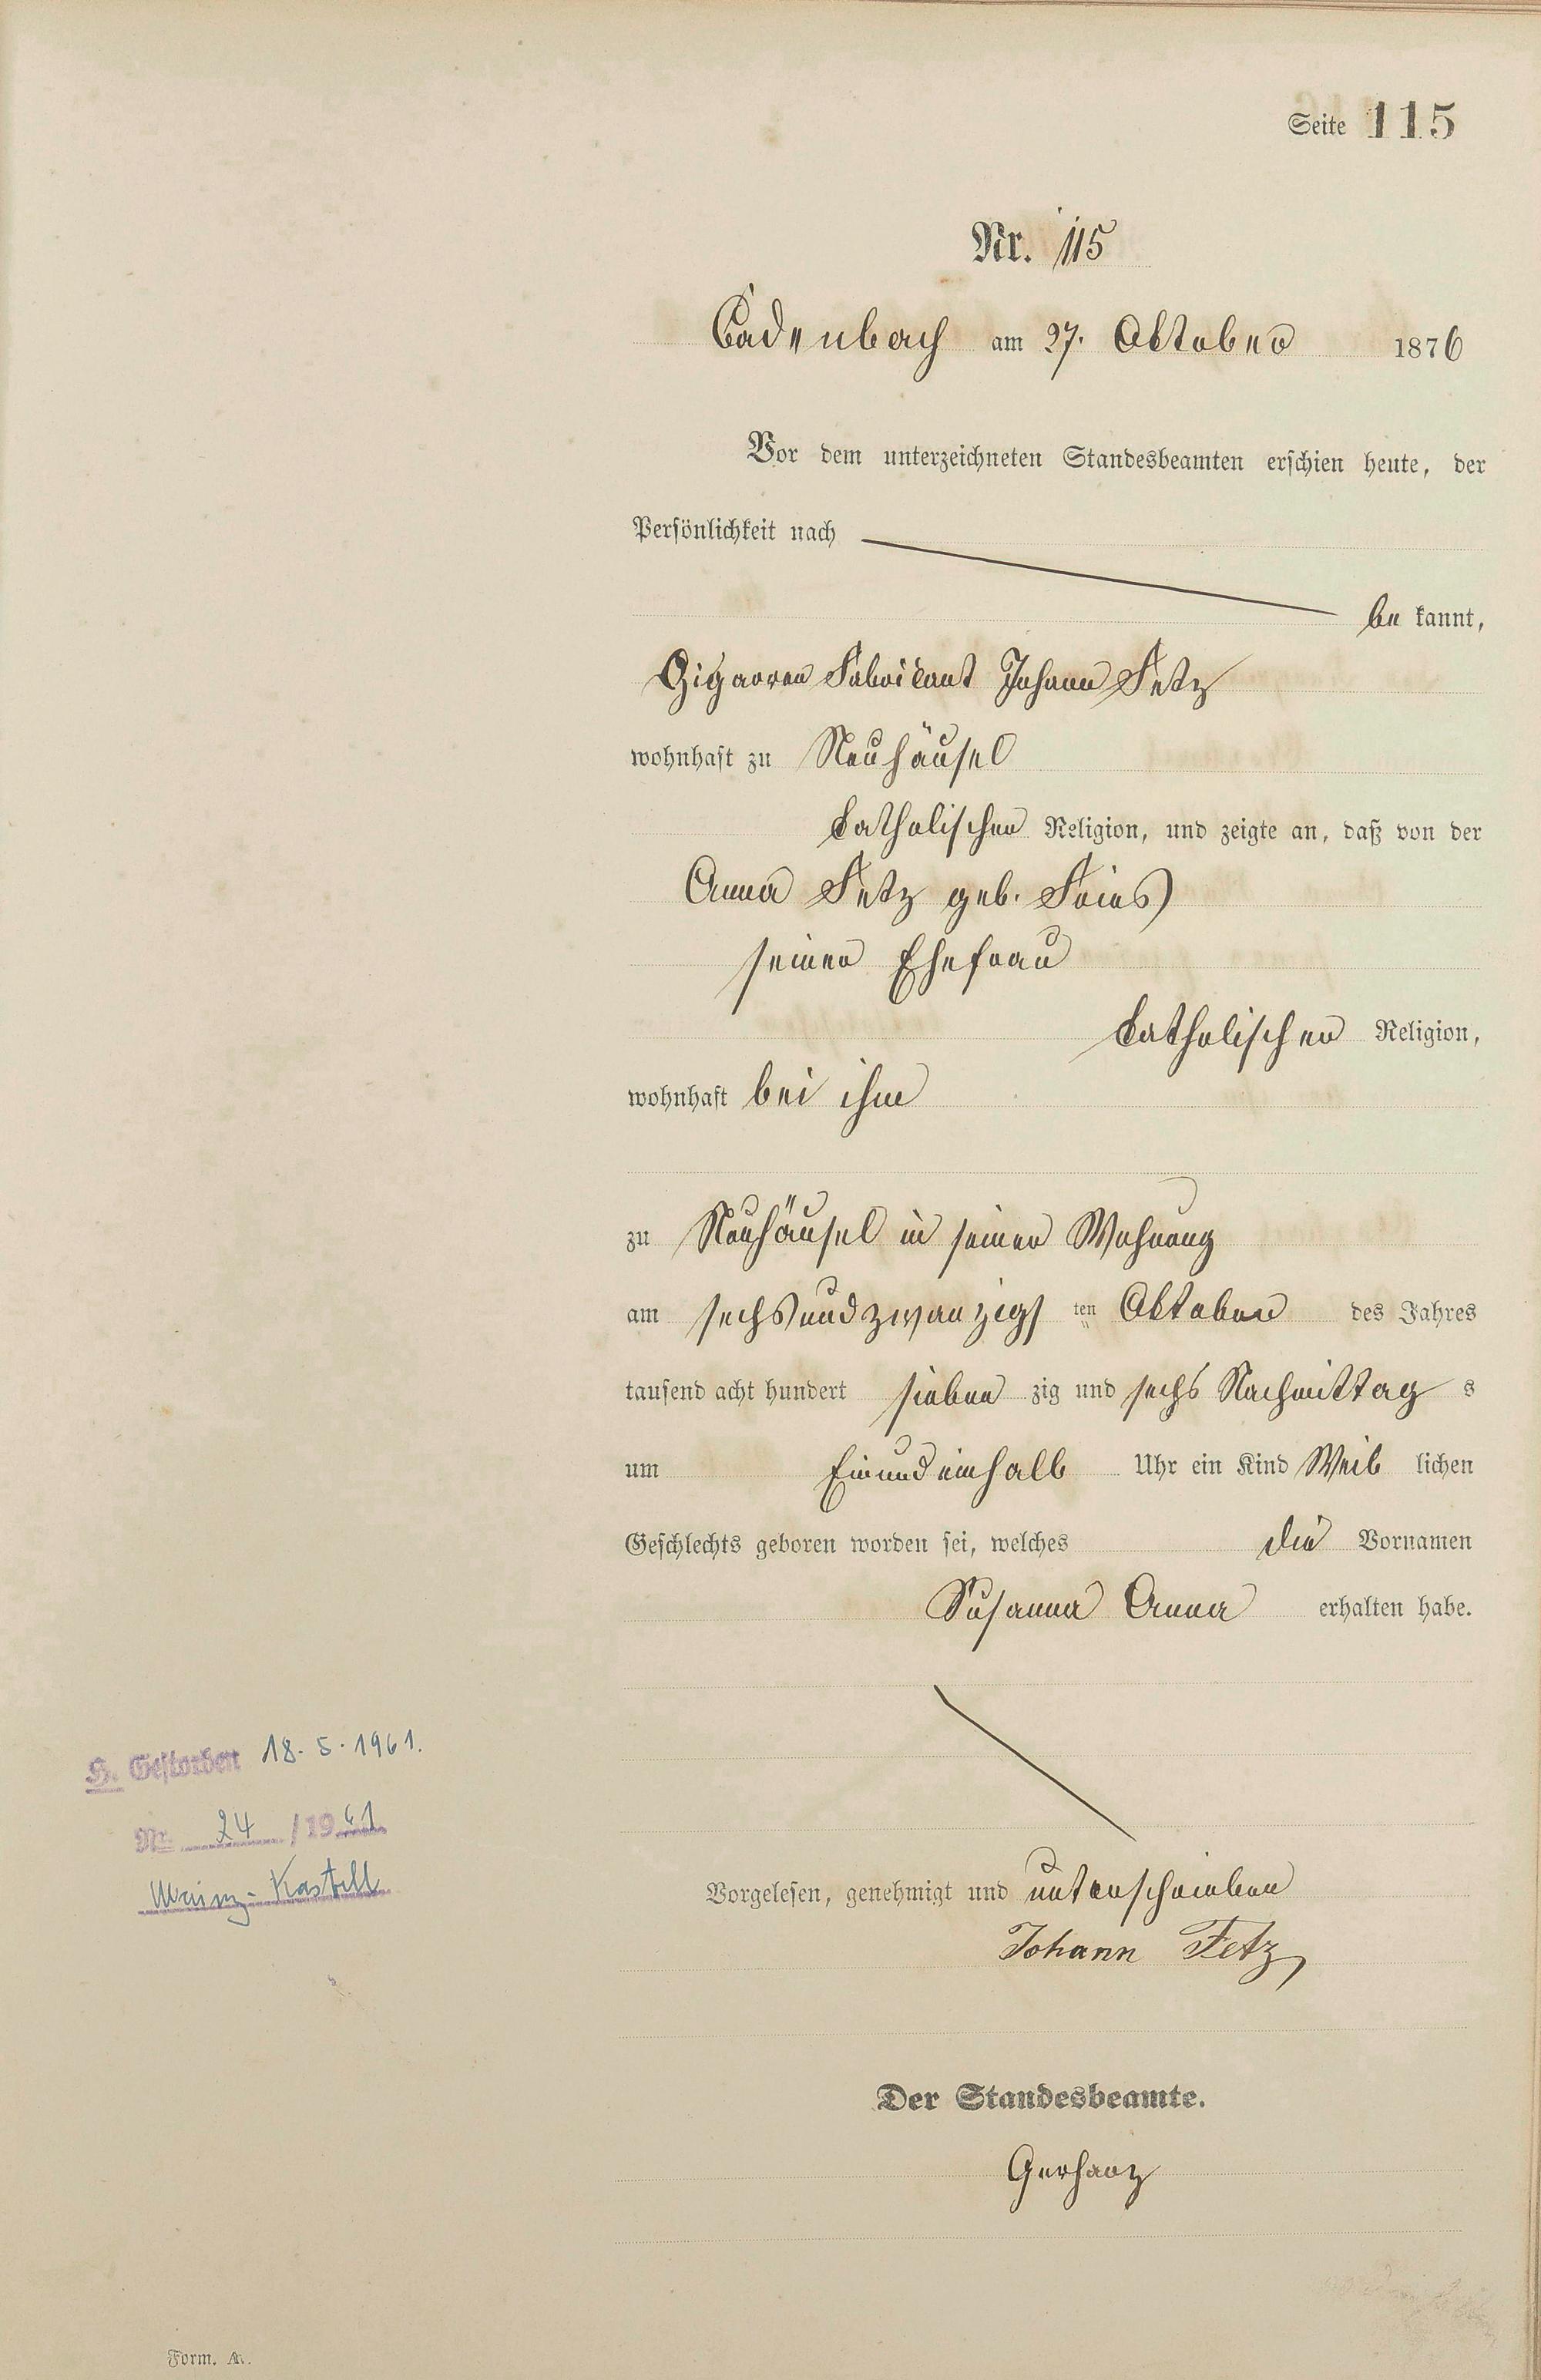 Seite 115
Nr. 115
Cadenbach am 27. Oktober 1876
Vor dem unterzeichneten Standesbeamten erschien heute, der
Persönlichkeit nach
be kannt,
Cigarren Fabrikant Johann Fetz
wohnhaft zu Neuhäusel
katholischer Religion, und zeigte an, daß von der
Anna Fetz geb. Fries
seiner Ehefrau
katholischer Religion,
wohnhaft bei ihm
zu Neuhäusel in seiner Wohnung
am sechsundzwanzigs ten Oktober des Jahres
tausend acht hundert sieben zig und sechs Nachmittag s
um Einundeinhalb Uhr ein Kind Weib lichen
Geschlechts geboren worden sei, welches die Vornamen
Susanna Anna erhalten habe.
H. Gestorben 18.5.1961.
Nr. 24 /1961
Mainz-Kastell
Vorgelesen, genehmigt und unterschrieben
Johann Fetz
Der Standesbeamte.
Gerharz
Form. A.